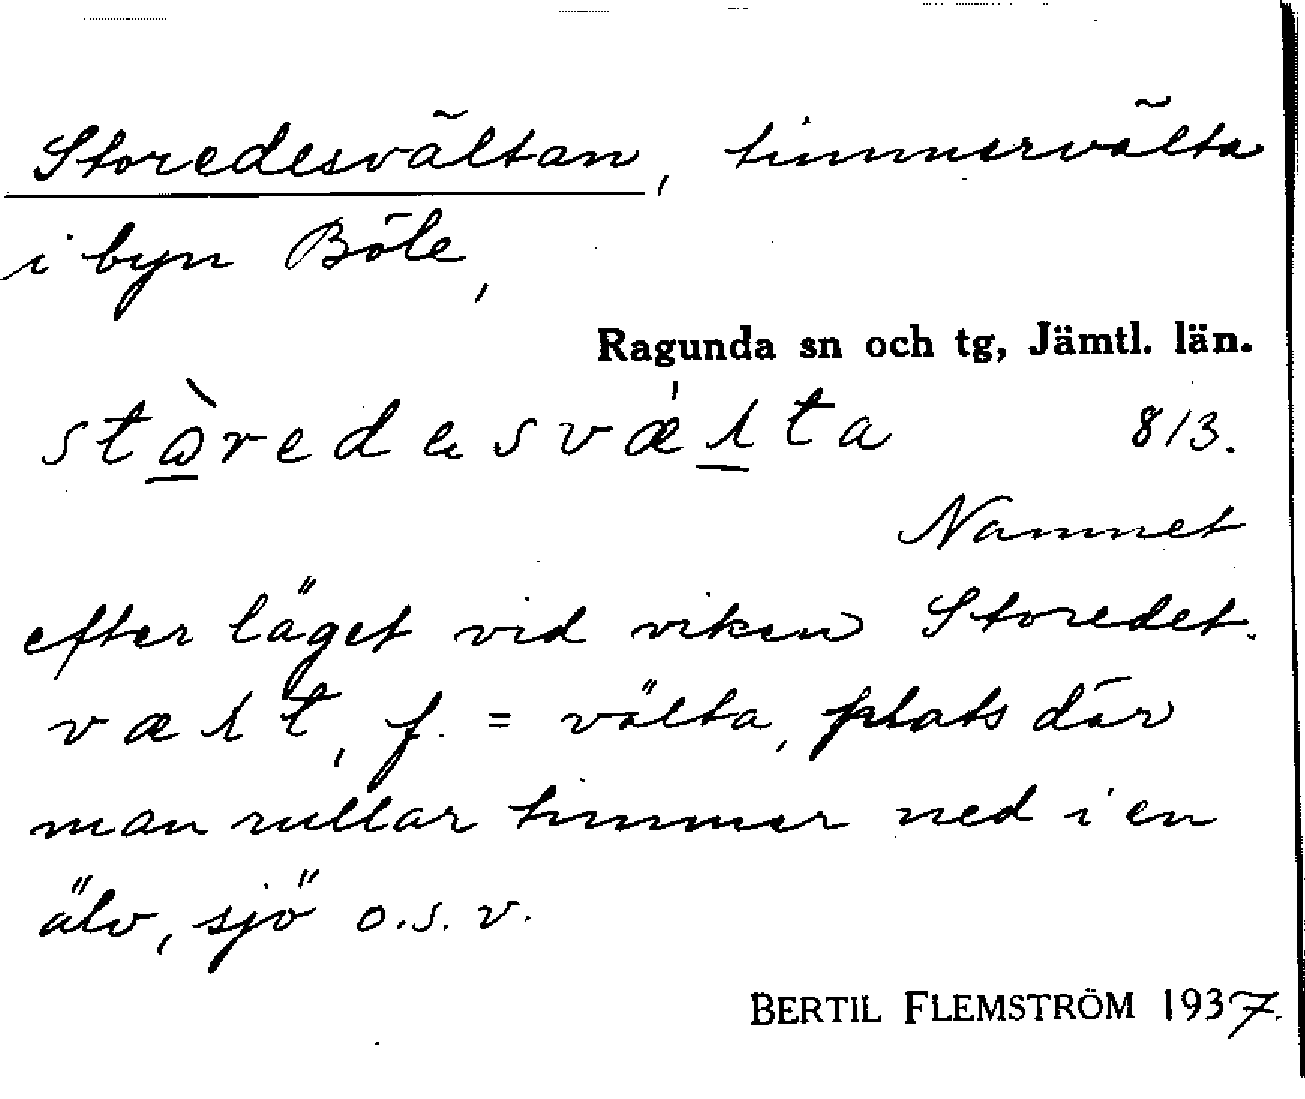 Storedesvältan, timmervälta
i byn Böle,
Ragunda sn och tg, Jämtl. län.
813.
Namnet
efter läget vid viken Storedet.
f. = välta, plats där
man rullar timmer ned i en
älv, sjö o.s.v.
BERTIL FLEMSTRÖM 1937.